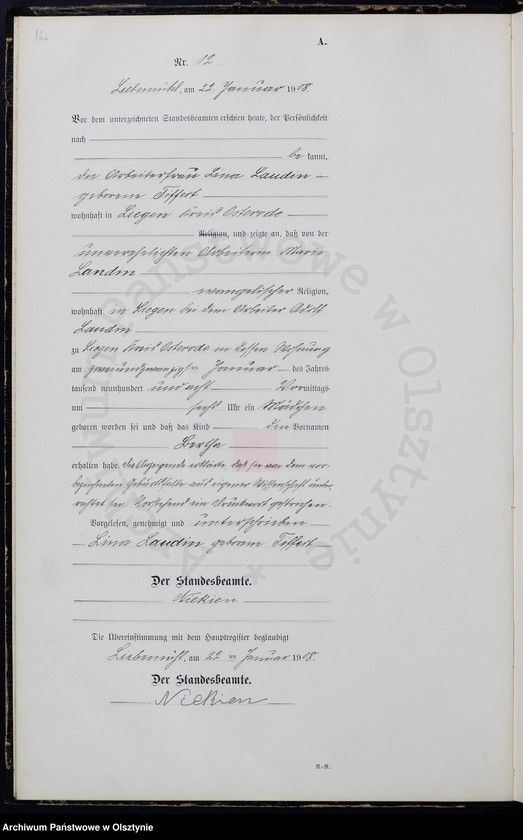 12
A.
Nr. 12
Liebemühl, am 22. Januar 1908.
Vor dem unterzeichneten Standesbeamten erschien heute, der Persönlichkeit
nach
be kannt,
die Arbeiterfrau Lina Laudin
geborene Tiffert
wohnhaft in Liegen Kreis Osterode
Religion, und zeigte an, daß von der
unverehelichten Arbeiterin Marie
Laudin
evangelischer Religion,
wohnhaft in Liegen bei dem Arbeiter Adolf
Laudin
zu Liegen Kreis Osterode in dessen Wohnung
am zweiundzwanzigsten Januar des Jahres
tausend neunhundert und acht Vormittags
um sechs Uhr ein Mädchen
geboren worden sei und daß das Kind den Vornamen
Bertha
erhalten habe. Die Anzeigende erklärte, daß sie von dem vor-
bezeichneten Geburtsfalle aus eigener Wissenschaft unter-
richtet sei. Vorstehend ein Druckwort gestrichen.
Vorgelesen, genehmigt und unterschrieben
Lina Laudin, geborene Tiffert
Der Standesbeamte.
Nickien
Die Übereinstimmung mit dem Hauptregister beglaubigt
Liebemühl, am 22 ten Januar 1908.
Der Standesbeamte.
Nickien
R.-R.
Archiwum Państwowe w Olsztynie
Archiwum Państwowe w Olsztynie